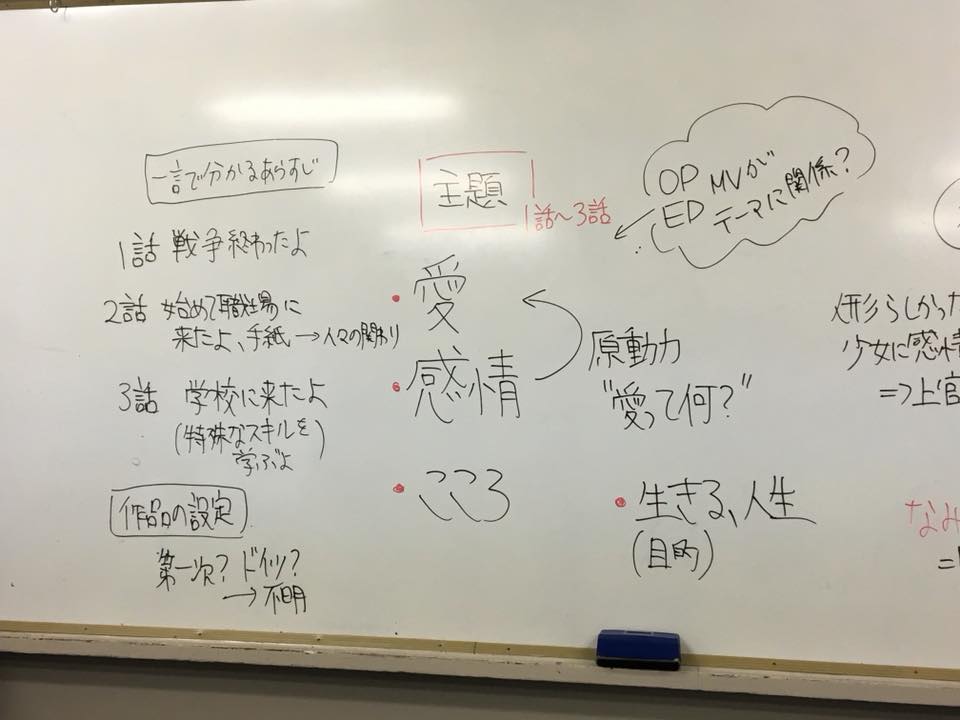 一言で分かるあらすじ
1話 戦争終わったよ
2話 始めて職場に
来たよ、手紙→人々の関わり
3話 学校に来たよ
(特殊なスキルを
学ぶよ)
作品の設定
第一次? ドイツ?
→不明
主題
1話〜3話
・愛
・感情
・こころ
OP MVが
ED テーマに関係?
原動力
"愛って何?"
・生きる、人生
(目的)
人形らしかった
少女に感情
⇒上官
なみ
=